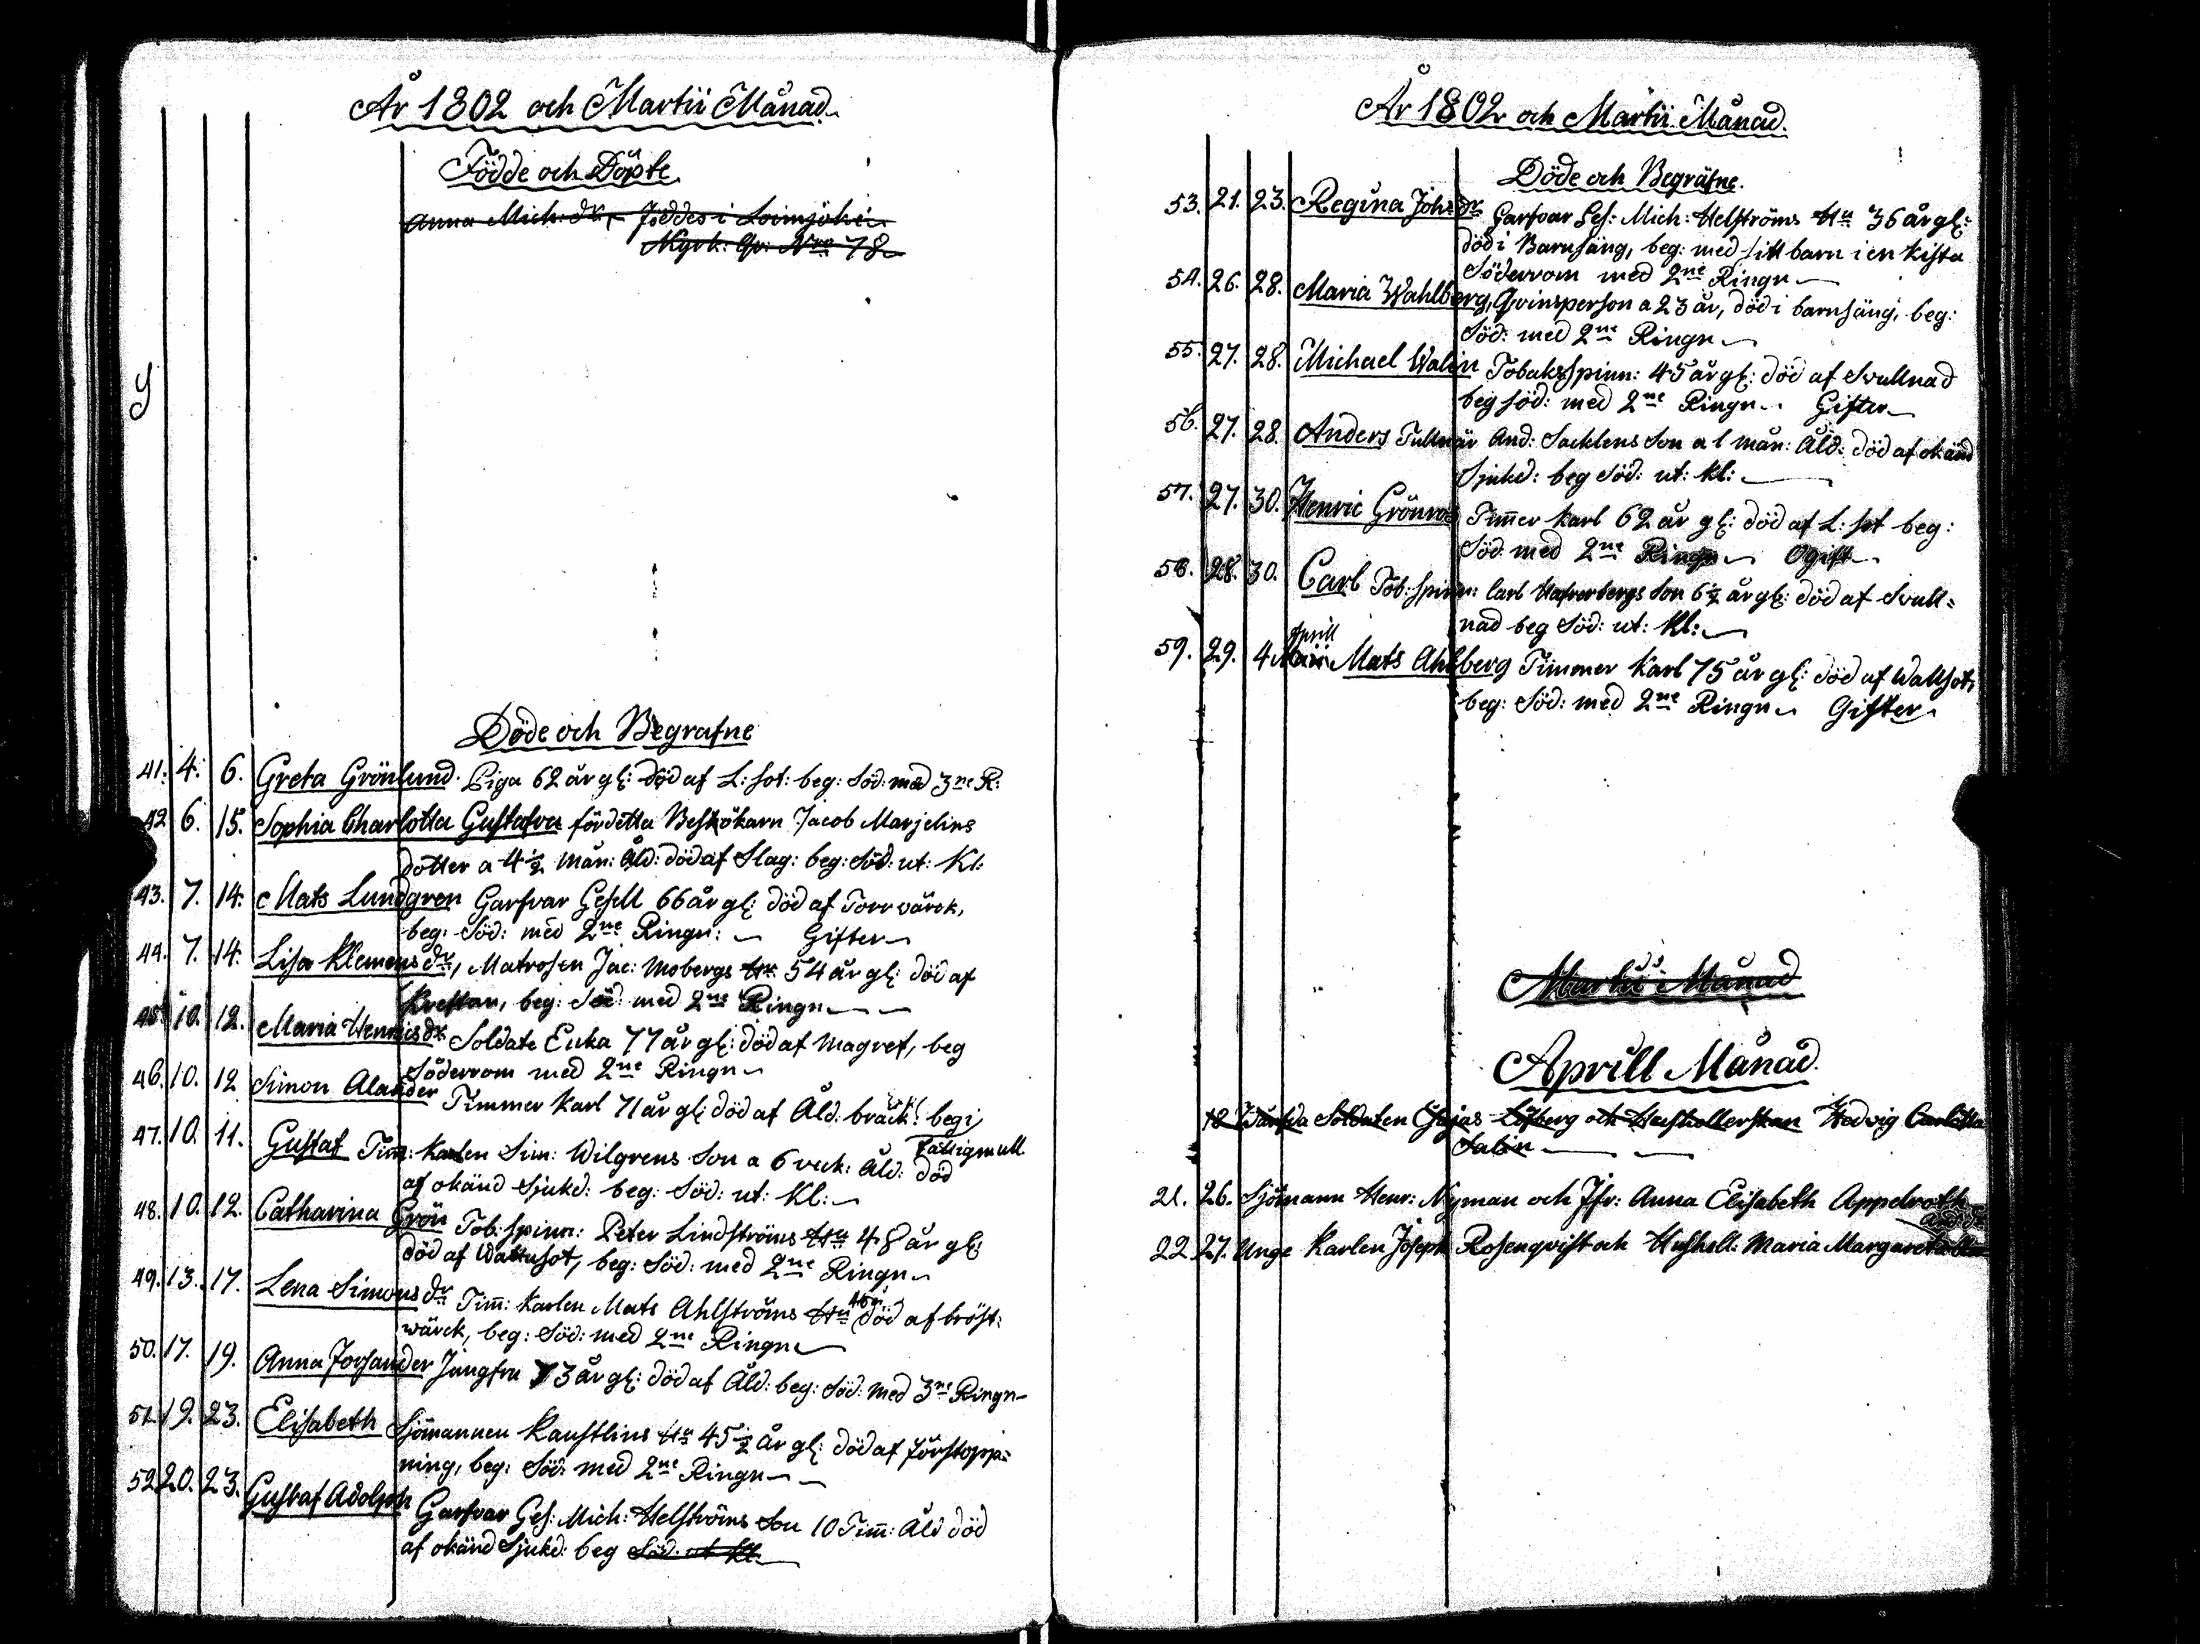 År 1802 och Martii Månad
Födde och Döpte
Anna Mich: dr, föddes i Loimjoki
Kyrk: Qv: Nro 78
Döde och Begrafne
41. 4. 6. Greta Grönlund. Piga 62 år gl: död af L: sot: beg: Söd: med 3ne R:
42 6. 15. Sophia Charlotta Gustafva fördetta Besökarn Jacob Marjelins
dotter a 4½ Mån: Åld: död af Slag: beg: Söd: ut: Kl:
43. 7. 14. Mats Lundgren Garfvar Gesell 66 år gl: död af Torrvärck,
beg: Söd: med 2ne Ringn: Gifter
44. 7. 14. Lisa Klemens dr, Matrosen Jac: Mobergs Hu 54 år gl: död af
Kreftan, beg: Söd: med 2ne Ringn
45 10. 12. Maria Henricsdr Soldate Enka 77 år gl: död af Magref, beg
Söderrom med 2ne Ringn
46. 10. 12 Simon Alander Timmer Karl 71 år gl: död af Åld: bräck: beg i
fattigmull
47. 10. 11. Gustaf Tim: Karlen Sim: Wilgrens Son a 6 veck: Åld: död
af okänd Sjukd: beg: Söd: ut: Kl:
48. 10. 12. Catharina Grön Tob: Spinn: Peter Lindströms Hu 48 år gl:
död af Wattusot, beg: Söd: med 2ne Ringn
49. 13. 17. Lena Simons dr Tim: Karlen Mats Ahlströms Hu död af bröst:
wärck, beg: Söd: med 2ne Ringn
50. 17. 19. Anna Forsander Jungfru 73 år gl: död af Åld: beg: Söd: med 3ne Ringn
51. 19. 23. Elisabeth Sjömannen Kanstlins Hu 45½ år gl: död af förstopp:
ning, beg: Söd: med 2ne Ringn
52 20. 23. Gustaf Adolph Garfvar Ges: Mich: Helströms Son 10 Tim: Åld död
af okänd Sjukd: beg Söd: ut Kl:
År 1802 och Martii Månad.
Döde och Begrafne.
53. 21. 23. Regina Joh: dr Garfvar Ges: Mich: Helströms Hu 36 år gl:
död i Barnsäng, beg: med sitt barn i en Kista
Söderrom med 2ne Ringn
54. 26. 28. Maria Wahlberg, Qvinsperson a 23 år, död i barnsäng, beg:
Söd: med 2ne Ringn
55. 27. 28. Michael Walin Tobaks Spinn: 45 år gl: död af Svullnad
beg söd: med 2ne Ringn Gifter
56. 27. 28 Anders Tullnär And: Sacklens Son a 1 mån: Åld: död af okänd
Sjukd: beg Söd: ut: Kl:
57. 27. 30. Henric Grönroos Timer Karl 62 år gl: död af L: sot beg:
Söd med 2ne Ringn Ogift
58. 28. 30. Carl Tob: Spinn: Carl Hafverbergs Son 6½ år gl: död af Svull:
nad beg Söd: ut: Kl:
Aprill
59. 29. 4 Maii Mats Ahlberg Timmer Karl 75 år gl: död af Wattsot,
beg: Söd: med 2ne Ringn Gifter
Martii Månad
Aprill Månad.
18 Soldaten Löfberg och Hushollerskan Hedwig Carlotta
Salin
21. 26. Sjömann Henr: Nyman och Jfr: Anna Elisabeth Appelroth
And: dr
22 27. Unge Karlen Joseph Rosenqvist och Hushåll: Maria Margareta